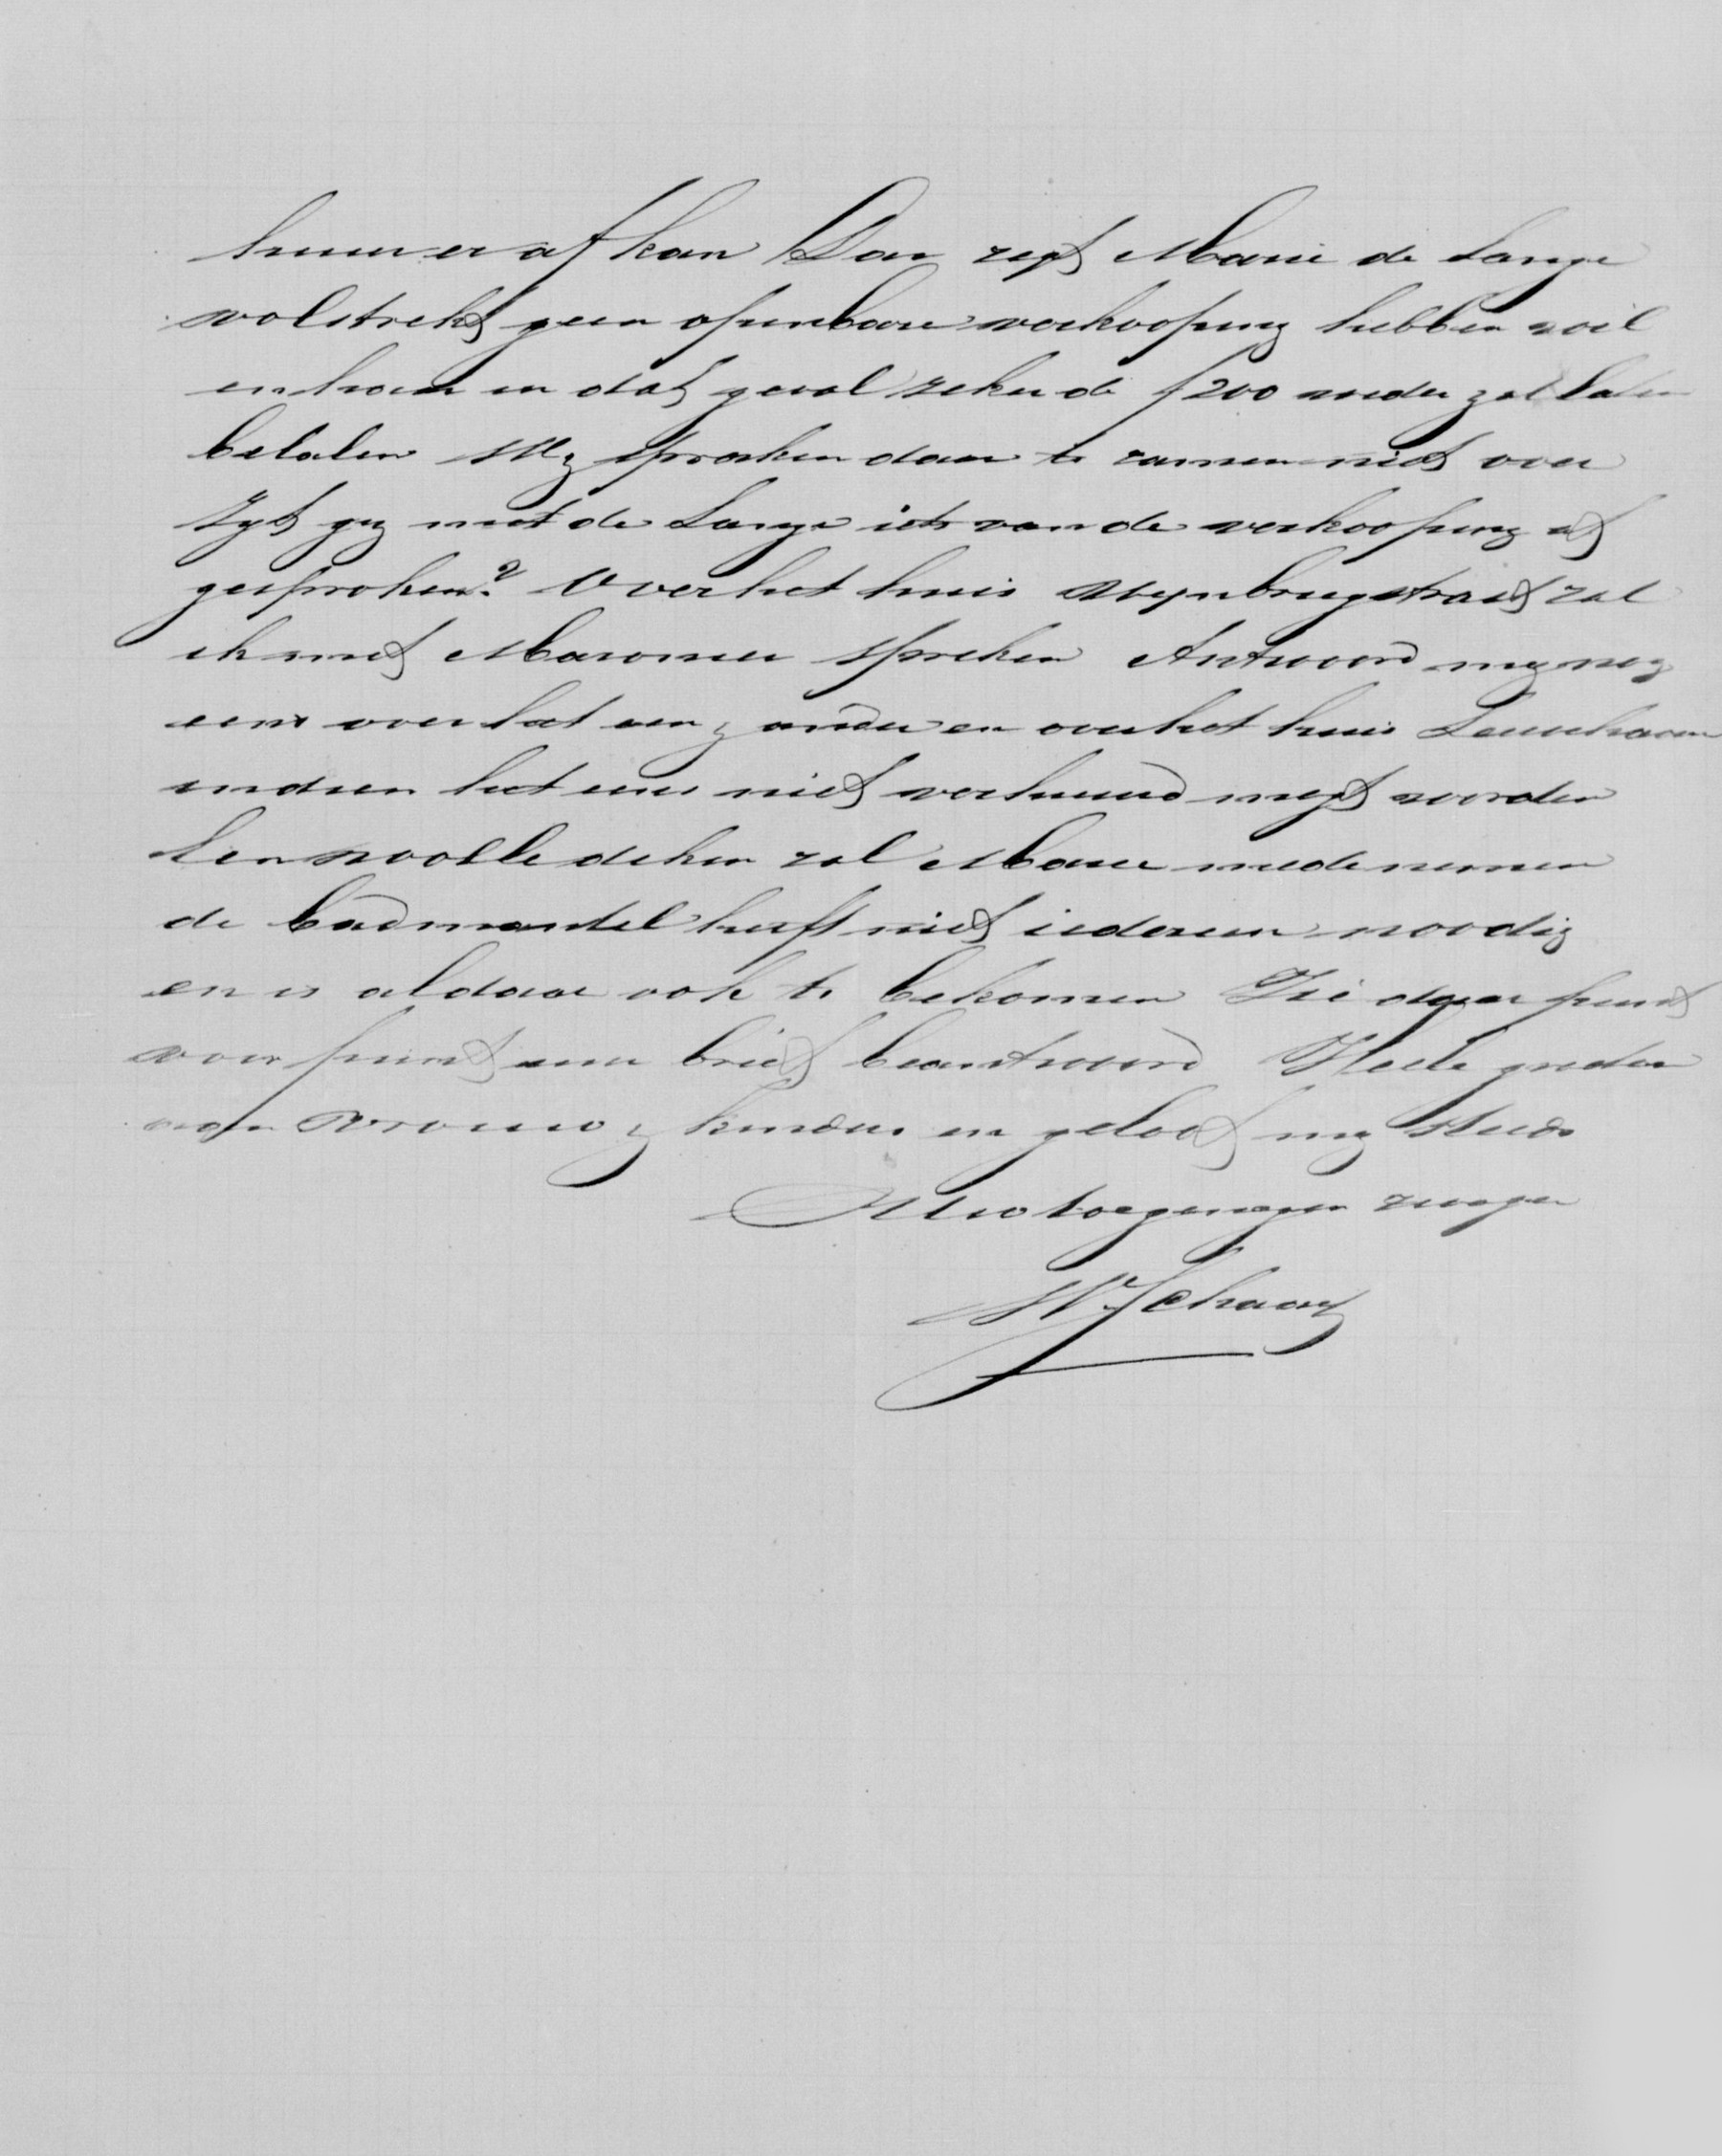 huur er af kan Dan zegt Marie de Lange
volstrekt geen openbare verkooping hebben wil
en haar in dat geval zeker de f 200 weder zal laten
betalen Wy spraken daar te zamen niet over
Zyt gy met de Lange iets van de verkooping af
gesproken? Over het huis Wynbrugstraat zal
ik met spreken Antwoord my nog
eens over het een & ander en over het huis Leuvehaven
indien het eens niet verhuurd mogt worden
Een wolle deken zal Marie mede nemen
de badmantel heeft niet iedereen noodig
en is aldaar ook te bekomen Zie daar punt
voor punt uwe brief beantwoord Vele groeten
aan vrouw & kinderen en geloof my steeds
Uw toegenegen zwager
W Schaap